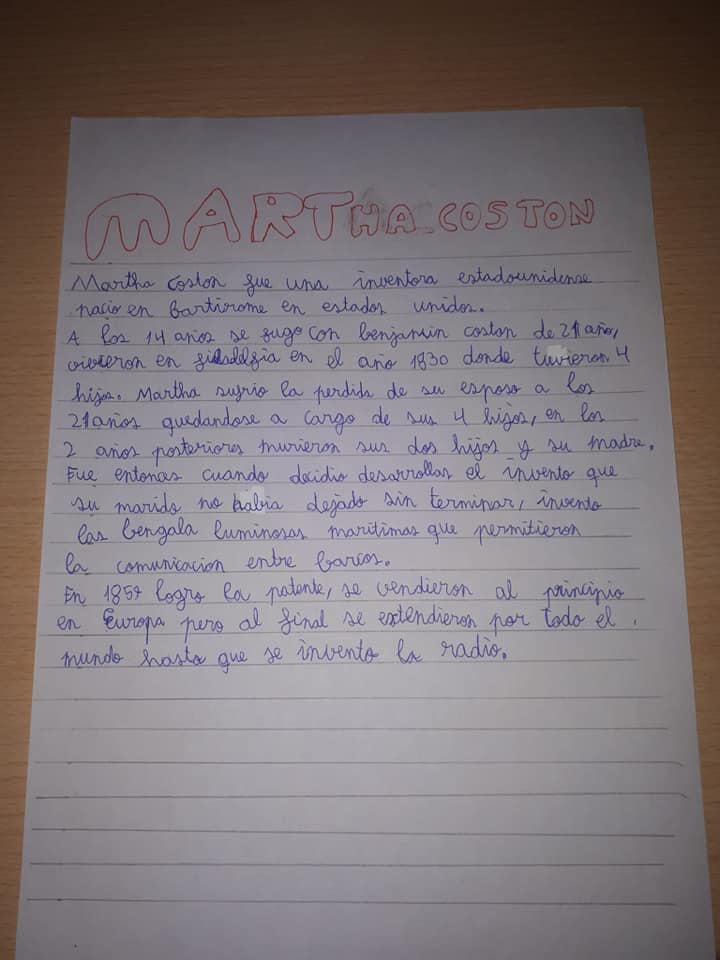 MARTHA COSTON
Martha Coston fue una inventora estadounidense
nacio en bartirome en estados unidos.
A los 14 años se fugo con benjamin coston de 21 año,
vivieron en filadelfia en el año 1830 donde tuvieron 4
hijos. Martha sufrio la perdida de su esposo a los
21 años quedandose a cargo de sus 4 hijos, en los
2 años posteriores murieron sus dos hijos y su madre.
Fue entonces cuando decidio desarrollar el invento que
su marido no habia dejado sin terminar, invento
las bengala luminosas maritimas que permitieron
la comunicacion entre barcos.
En 1859 logro la patente, se vendieron al principio
en Europa pero al final se extendieron por todo el
mundo hasta que se invento la radio.